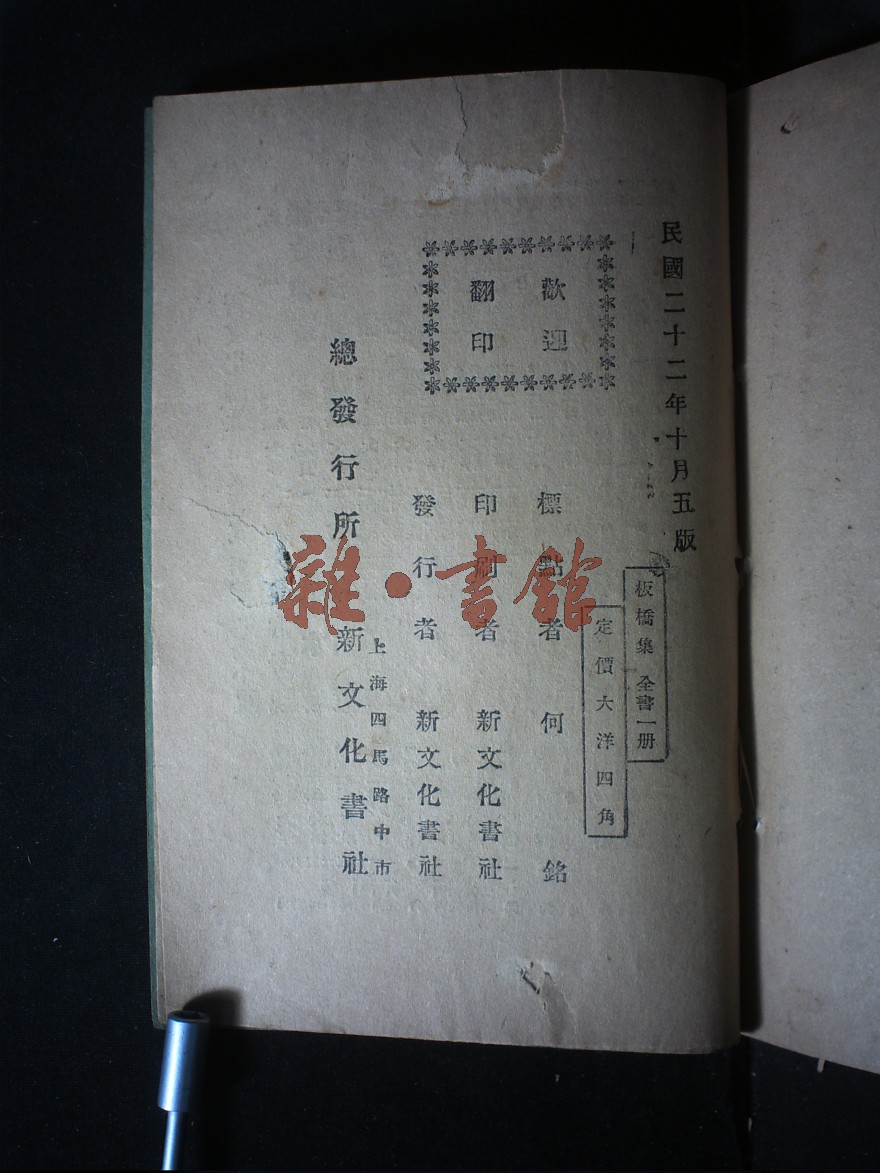 民國二十二年十月五版
板橋集 全書一册
定價大洋四角
歡迎
翻印
標點者 何銘
印刷者 新文化書社
發行者 新文化書社
上海四馬路中市
總發行所 新文化書社
雜·書館